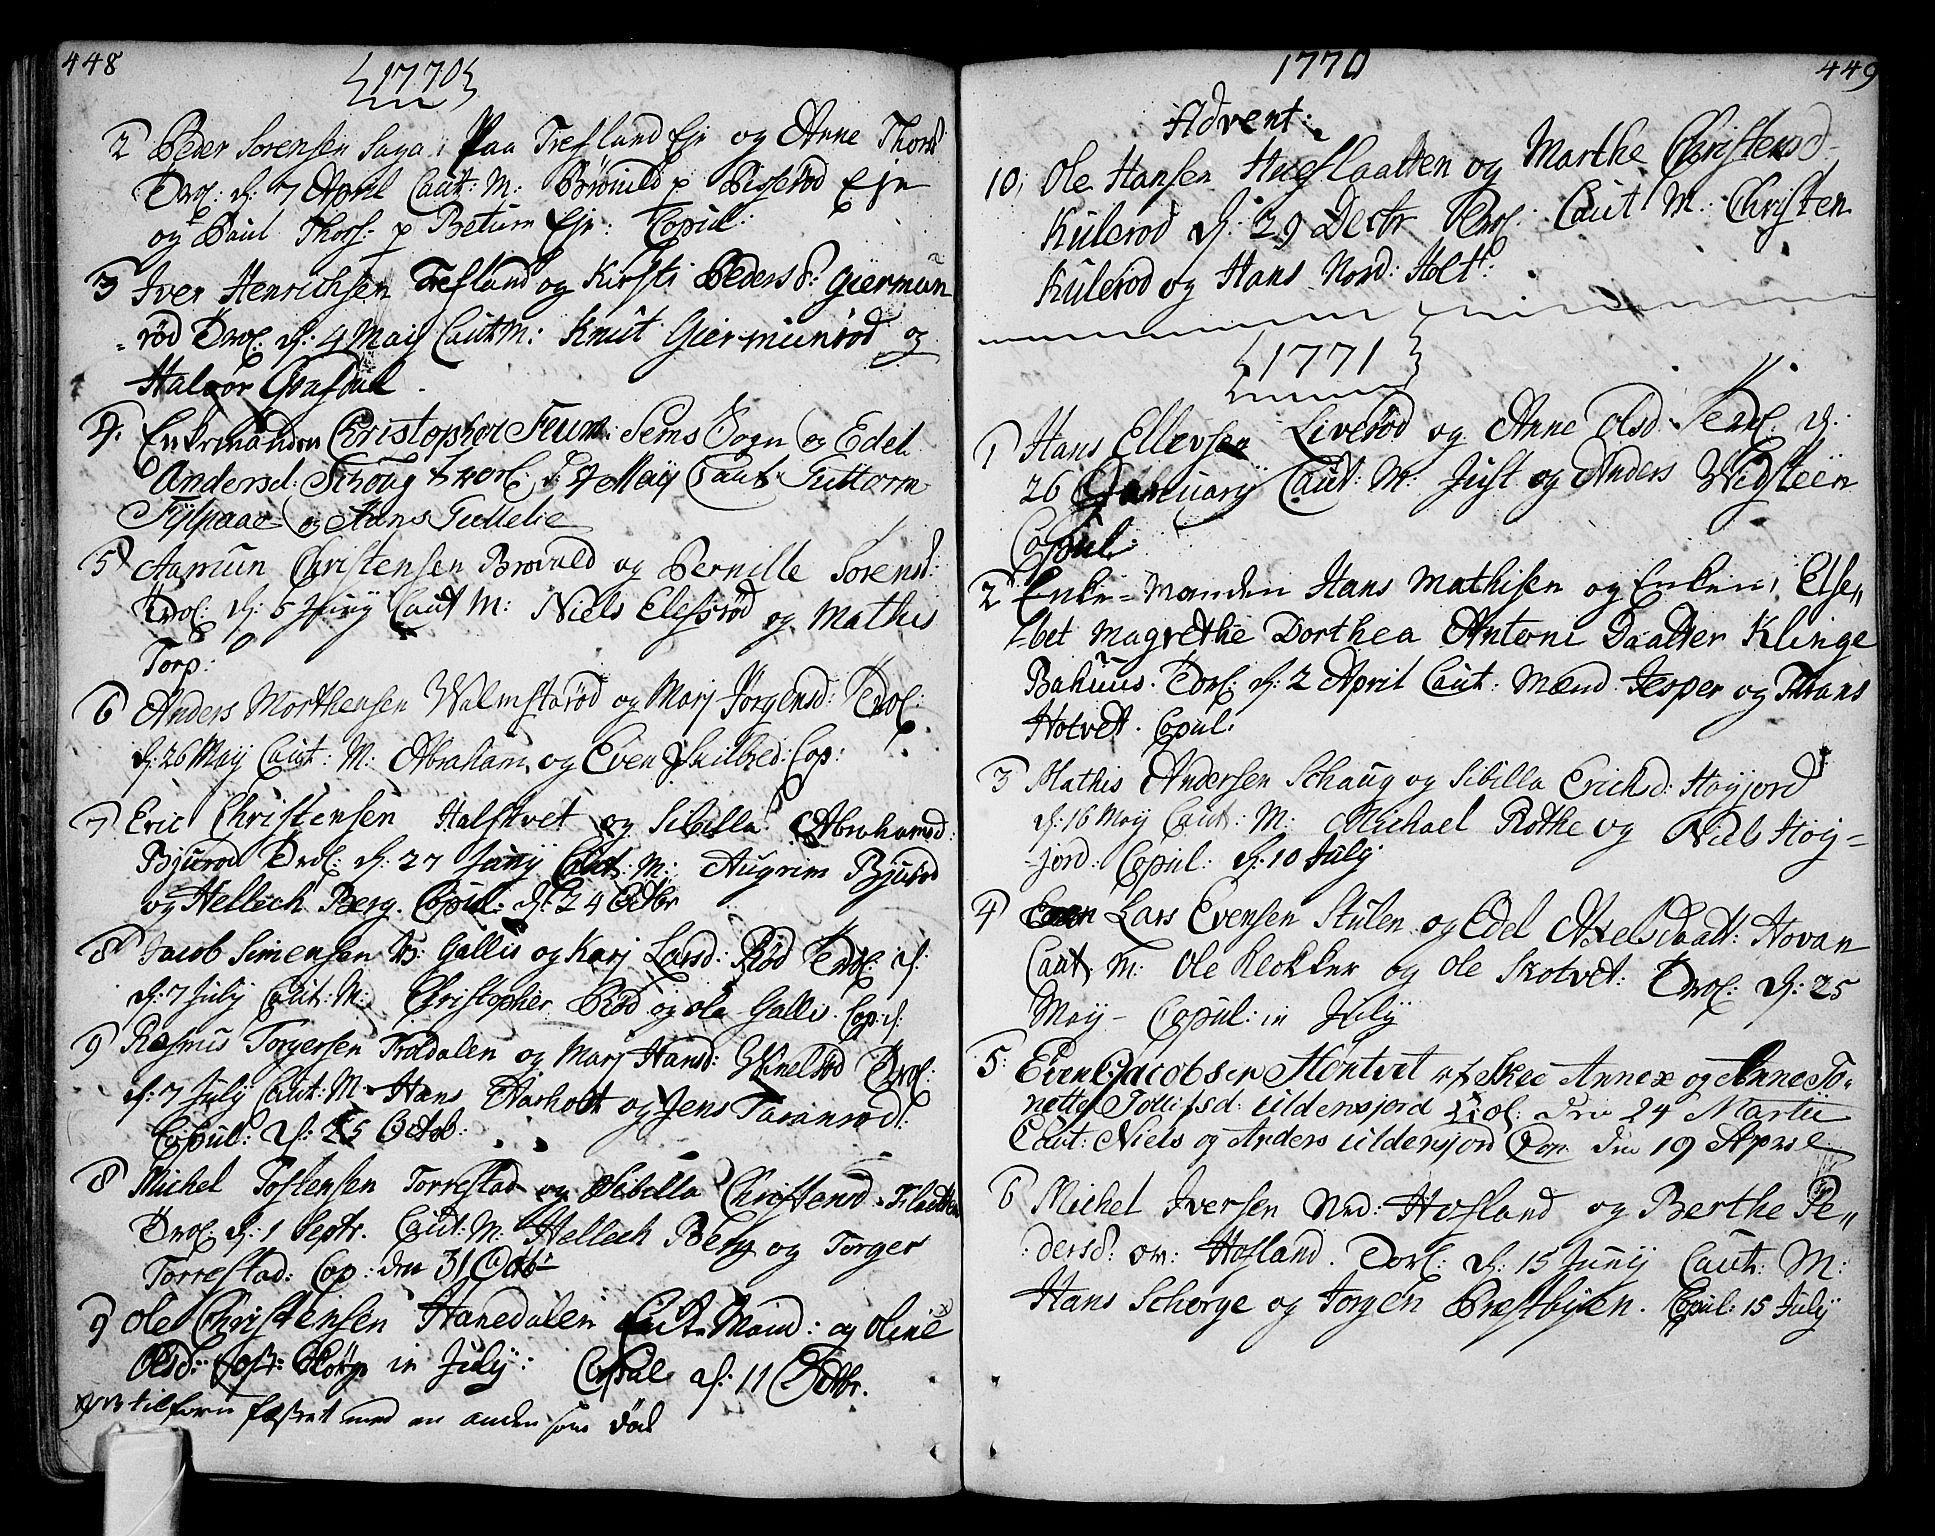 448
1770
2 Peder Sorensen Saga: Paa Trefland Eje og Anne Thorsd
Trol: d: 7 April Caut: M: Brövild p Bisserod Eje
og Paul Thors: p Betum Eje: Copul:
3 Iver Henrichsen Trefland og Kirsti Pedersd: Giermun
-röd Trol: d: 4 Maij Caut M: Knut Giermunröd og
Halvor
4. Enkemanden Christopher Feum: Sems Sogn og Edel
Andersd: Schoug Trol: d: Maij Caut: Guttorm
og Hans Gullelie
5 Aamun Christensen Brovald og Pernille Sorensd:
Trol: d: 5 Junij Caut M: Niels Elefsröd og Mathis
Torp:
6 Anders Morthensen Walmestaröd og Marj Jörgensd: Trol:
d: 26 Maij Caut: M: Abraham og Even Cop:
7 Eric Christensen Halstvet og Sibilla Abrahamsd:
Bjuröd Trol: d: 27 Junij Caut: M: Augrim Bjuröd
og Hellech Berg. Copul: d: 24 Octbr
8 Jacob Simensen Gallis og Karj Larsd: Röd Trol: d:
d: 7 July Caut: M: Christopher Röd og Ola Gallis. Cop: d:
9 Rasmus Torgersen Troldalen og Marj Hansd: Winelsöd Trol:
d: 7 July Caut: M: Hans Aasholt og Jens Taranröd:
Copul: d: 25 Octob:
8 Michel Tostensen Torrestad og Sibilla Christensd Flaatten
Trol: d: 1 Septr. Caut: M: Hellech Berg og Torger
Torrestad: Cop: den 31 Octbr
9 Ole Christensen Hanedalen Enke Mand: og Oline
Olsd: in July: Copul d: 11 Octbr.
tilforn fæstet med en anden som död
1770
449
Advent:
10, Ole Hansen Hugslaatten og Marthe Christensd
Kuleröd d: 29 Decbr Trol: Caut M: Christen
Kuleröd og Hans Nord: Holt:
1771
1 Hans Ellevsen Liveröd og Anne Olsd Trol: d:
26 January Caut: M: Just og Anders Widsteen
Copul:
2 Enke-Manden Hans Mathisen og Enken, Else„
-bet Magrethe Dorthea Antoni Daatter Klinge
Bahuus. Trol: d: 2 April Caut: Mænd Jesper og Frans
Hotvet. Copul:
3 Mathis Andersen Schaug og Sibilla Erichsd: Høyjord
d: 16 Maij Caut: M: Michael Röthe og Niels Höy=
-jord: Copul: d: 10 July
4 Lars Evensen Stulen og Edel Axelsdaat: Hovan
Caut, M: Ole Klokker og Ole Skotvet: Trol: d: 25
Maij - Copul: in July
5: Even Jacobsen Höntvet af Skee Annex og Anne To-
nette Tollifsd: Uldensjord Trol: den 24 Martii
Caut: Niels og Anders Uldensjord Cop: den 19 Aprile
6 Michel Iversen Ned: Hosland og Berthe Pe„
:dersd: ov: Hosland. Torl: d: 15 Junij Caut: M:
Hans Schorge og Jorgen Prestbyen. Copul: 15 July